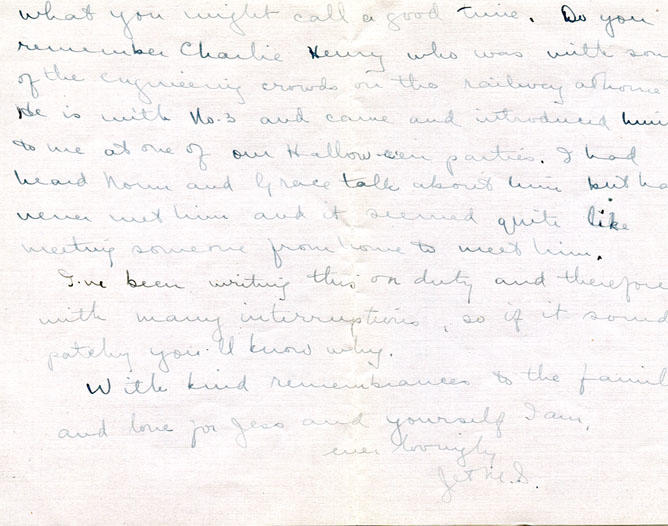 what you might call a good time. Do you
remember Charlie Henry who was with som
of the engineering crowds on the railway at home
He is with No. 3 and came and introduced him
to me at one of our Hallow-een parties. I had
heard Norm and Grace talk about him but ha
never met him and it seemed quite like
meeting someone from home to meet him.
I've been writing this on duty and therefore
with many interruptions, so if it sound
patchy you'll know why.
With kind remembrances to the famil
and love for Jess and yourself I am,
ever lovingly